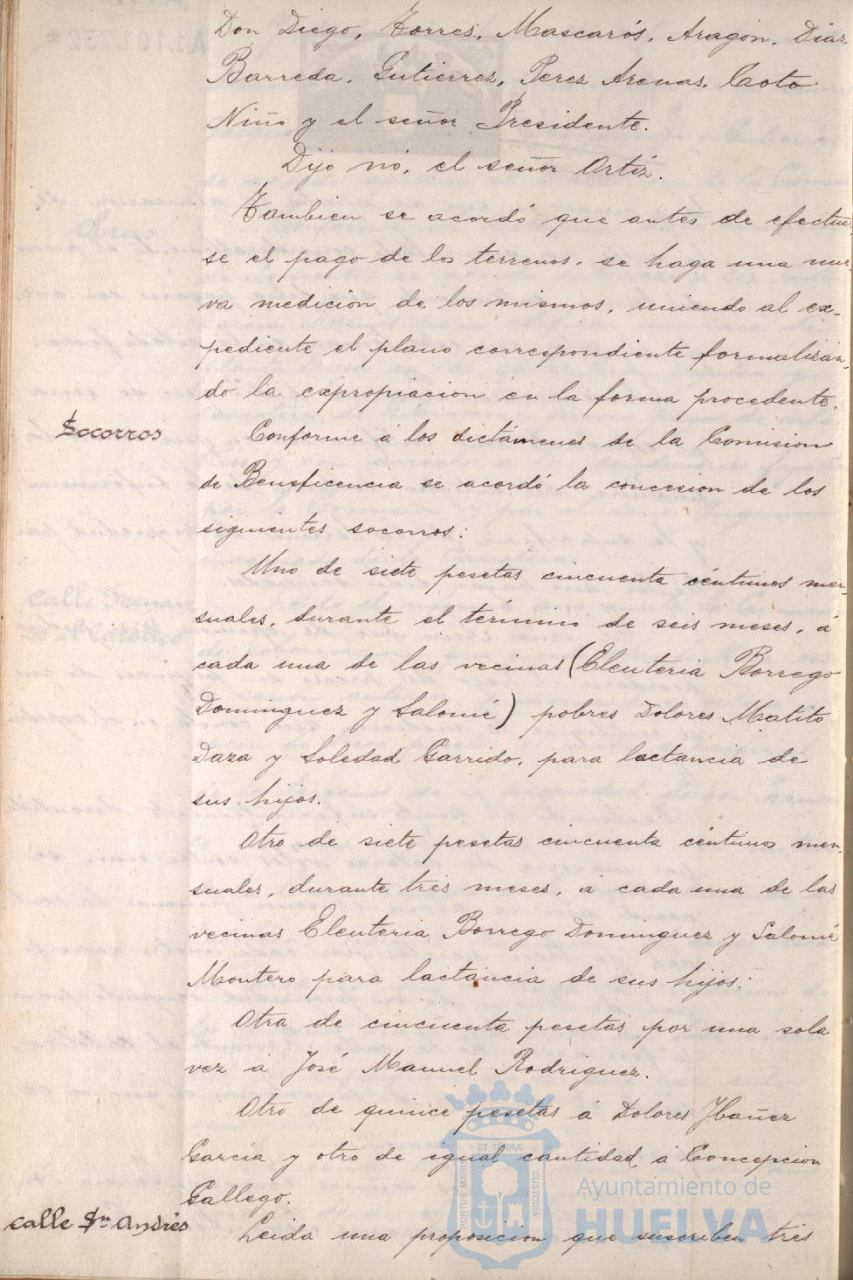 Don Diego, Torres, Mascarós, Aragón, Diaz
Barreda, Gutierrez, Perez Arenas, Coto
Niño y el señor Presidente.
Dijo nó, el señor Ortíz.
Tambien se acordó que antes de efectuar
se el pago de los terrenos, se haga una nue-
va medición de los mismos, uniendo al ex-
pediente el plano correspondiente formalizan-
do la expropiacion en la forma procedente.
Socorros
Conforme á los dictámenes de la Comision
de Beneficencia se acordó la concesion de los
siguientes socorros:
Uno de siete pesetas cincuenta céntimos men-
suales, durante el término de seis meses, á
cada una de las vecinas (Eleuteria Borrego
Dominguez y Salomé) pobres Dolores Matito
Daza y Soledad Garrido, para lactancia de
sus hijos.
Otro de siete pesetas cincuenta céntimos men-
suales, durante tres meses, á cada una de las
vecinas Eleuteria Borrego Dominguez y Salomé
Montero para lactancia de sus hijos.
Otra de cincuenta pesetas por una sola
vez á José Manuel Rodriguez.
Otro de quince pesetas á Dolores Ybañez
García y otro de igual cantidad á Concepcion
Gallego.
calle Sn Andrés
Leida una proposicion que suscriben tres
PORTUS MARIS ET TERRAE CUSTODIA
Ayuntamiento de
HUELVA